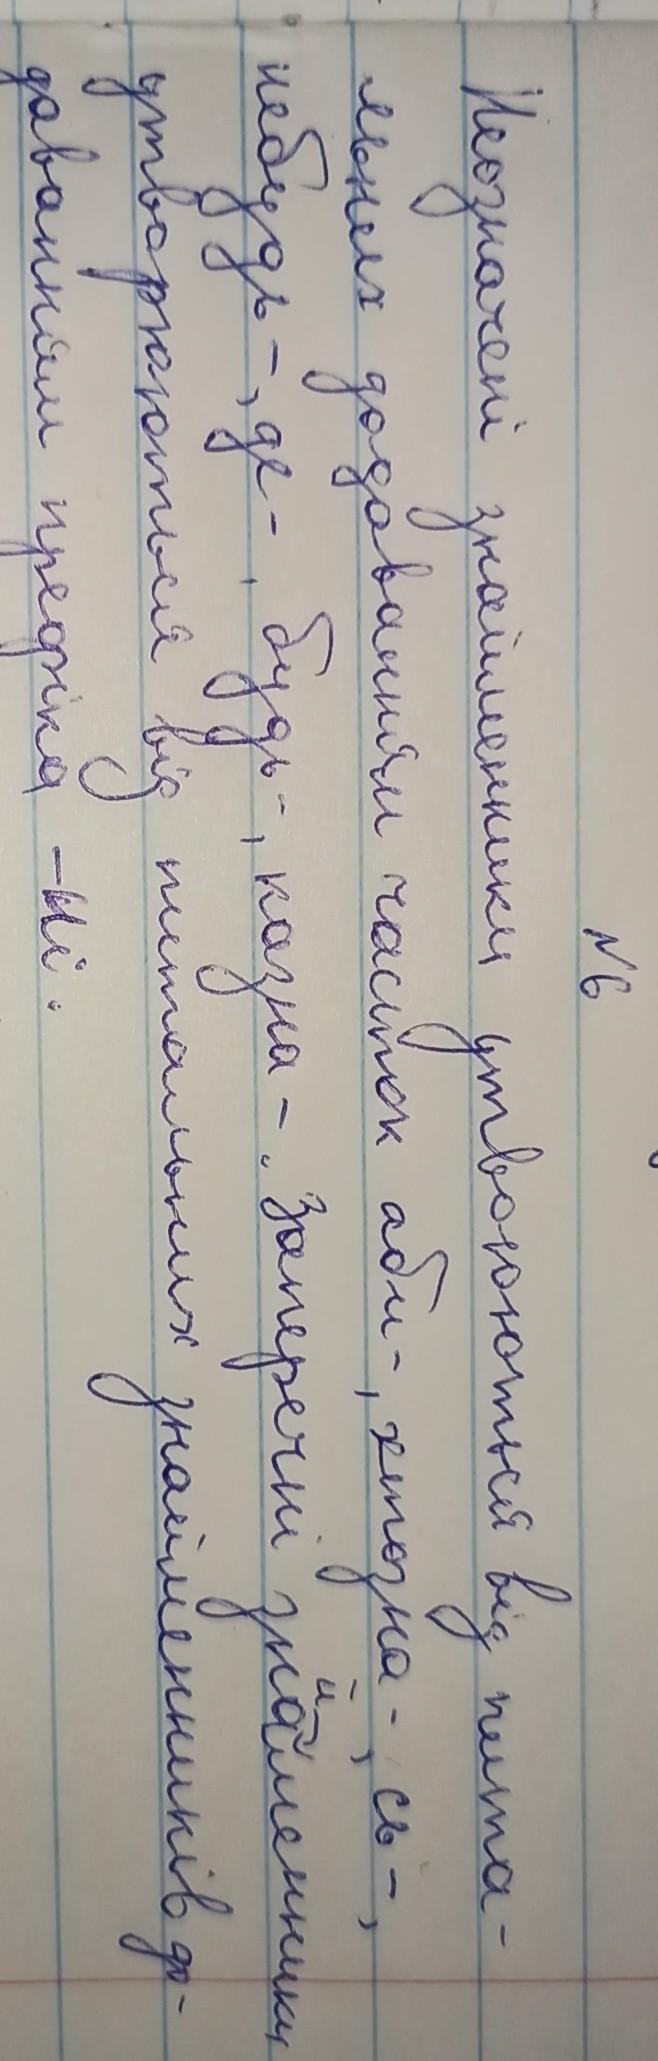 №6
Неозначені знайменники утворюються від пита-
льних додаванням часток аби-, хтозна-, сь-,
небудь-, де-, будь-, казна-. Заперечні знайменники
утворюються від питальних знайменників до-
даванням префікса -ні.